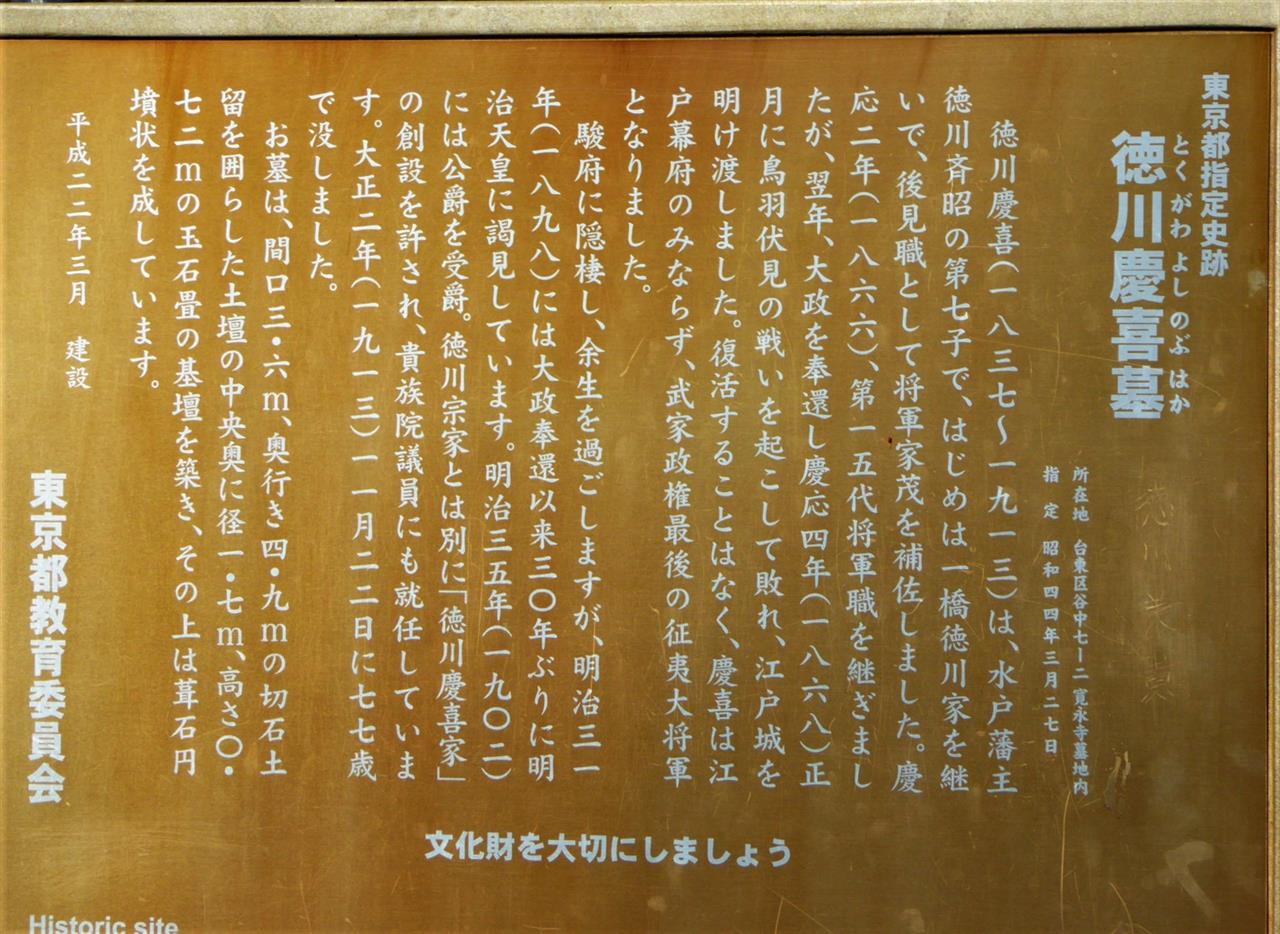 東京都指定史跡
とくがわ よしのぶ はか
徳川慶喜墓
所在地 台東区谷中七ー二 寛永寺墓地内
指定 昭和四四年三月二七日
徳川慶喜(一八三七〜一九一三)は、水戸藩主
徳川斉昭の第七子で、はじめは一橋徳川家を継
いで、後見職として将軍家茂を補佐しました。慶
応二年(一八六六)、第一五代将軍職を継ぎまし
たが、翌年、大政を奉還し慶応四年(一八六八)正
月に鳥羽伏見の戦いを起こして敗れ、江戸城を
明け渡しました。復活することはなく、慶喜は江
戸幕府のみならず、武家政権最後の征夷大将軍
となりました。
駿府に隠棲し、余生を過ごしますが、明治三一
年(一八九八)には大政奉還以来三〇年ぶりに明
治天皇に謁見しています。明治三五年(一九〇二)
には公爵を受爵。徳川宗家とは別に「徳川慶喜家」
の創設を許され、貴族院議員にも就任していま
す。大正二年(一九一三)一一月二二日に七七歳
で没しました。
お墓は、間口三・六m、奥行き四・九mの切石土
留を囲らした土壇の中央奥に径一・七m、高さ〇・
七二mの玉石畳の基壇を築き、その上は葺石円
墳状を成しています。
平成二二年三月 建設
東京都教育委員会
文化財を大切にしましょう
Historic site